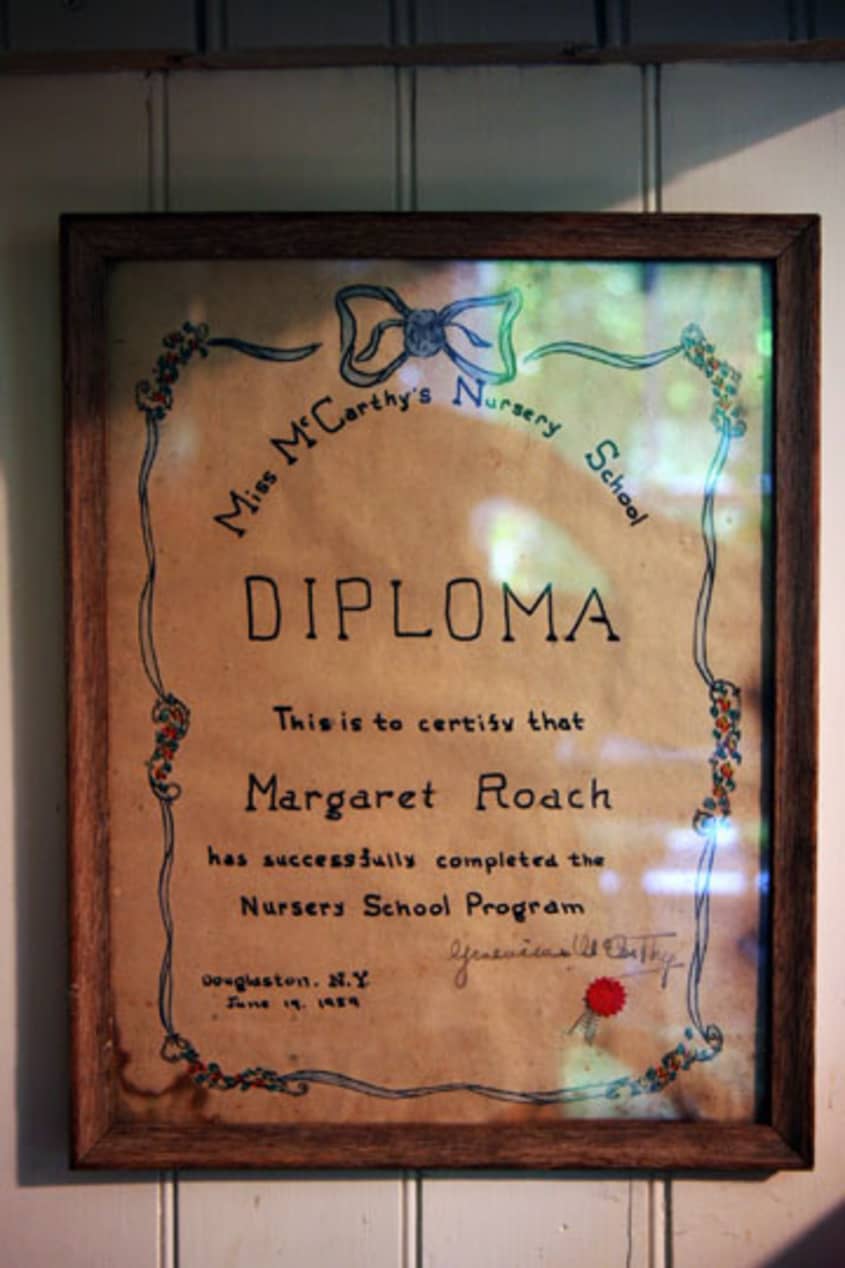 Miss McCarthy's Nursery School
DIPLOMA
This is to certify that
Margaret Roach
has successfully completed the
Nursery School Program
Genevieve McCarthy
Douglaston, N.Y.
June 19, 1959